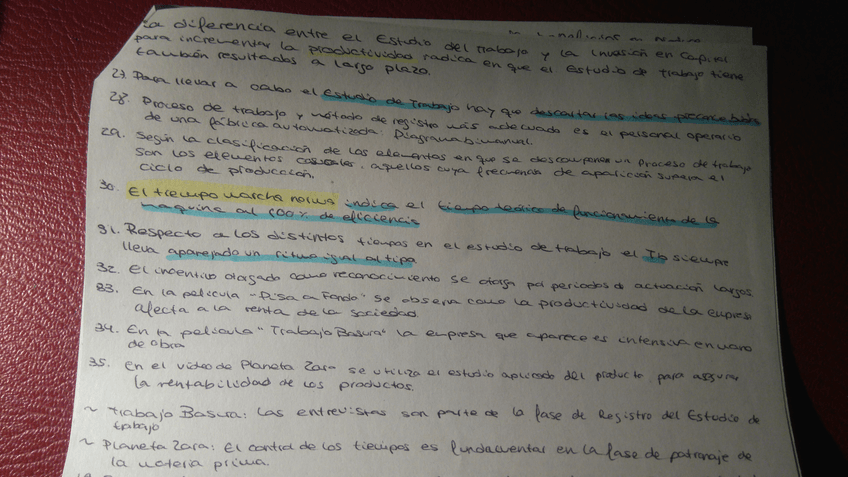 La diferencia entre el Estudio del trabajo y la invasión en Capital
para incrementar la productividad radica en que el Estudio de Trabajo tiene
también resultados a largo plazo.
27. Para llevar a cabo el Estudio de Trabajo hay que descartar las ideas preconcebidas
28. Proceso de trabajo y método de registro más adecuado es al personal operario
de una fábrica automatizada: Diagrama bimanual.
29. Según la clasificación de los elementos en que se descompone un proceso de trabajo
son los elementos casuales, aquellos cuya frecuencia de aparición supera el
ciclo de producción.
30. El tiempo marcha norma indica el tiempo teórico de funcionamiento de la
maquina al 100% de eficiencia
31. Respecto a los distintos tiempos en el estudio de trabajo el Tb siempre
lleva aparejado un ritmo igual al tipo
32. El incentivo otorgado como reconocimiento se otorga por periodos de actuación largos.
33. En la pelicula "Pisa a Fondo" se observa como la productividad de la empresa
afecta a la renta de la sociedad.
34. En la película "Trabajo Basura" la empresa que aparece es intensiva en mano
de obra
35. en el vídeo de Planeta Zara se utiliza el estudio aplicado del producto para asegurar
la rentabilidad de los productos.
~ Trabajo Basura: Las entrevistas son parte de la fase de Registro del Estudio de
trabajo
~ Planeta Zara: El control de los tiempos es fundamental en la fase de patronaje de
la materia prima.